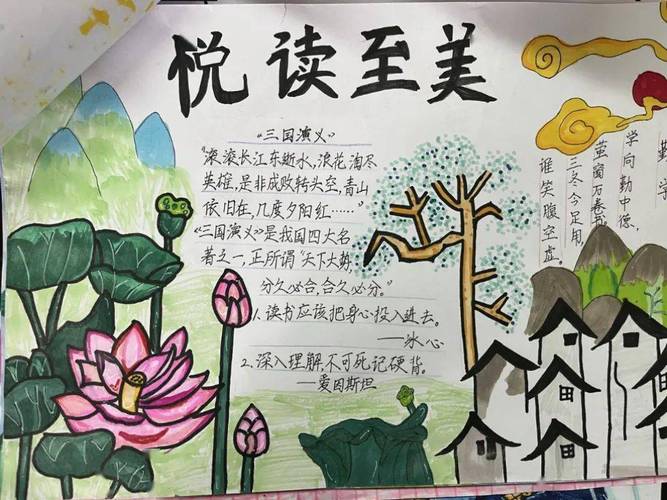 悦读至美
“三国演义”
“滚滚长江东逝水,浪花淘尽
英雄,是非成败转头空,青山
依旧在,几度夕阳红……”
《三国演义》是我国四大名
著之一,正所谓“天下大势,
分久必合,合久必分。”
1.读书应该把身心投入进去。
——冰心
2.深入理解不可死记硬背。
——爱因斯坦
学问勤中德、
萤窗万卷书
三冬今足用,
谁笑腹空虚。